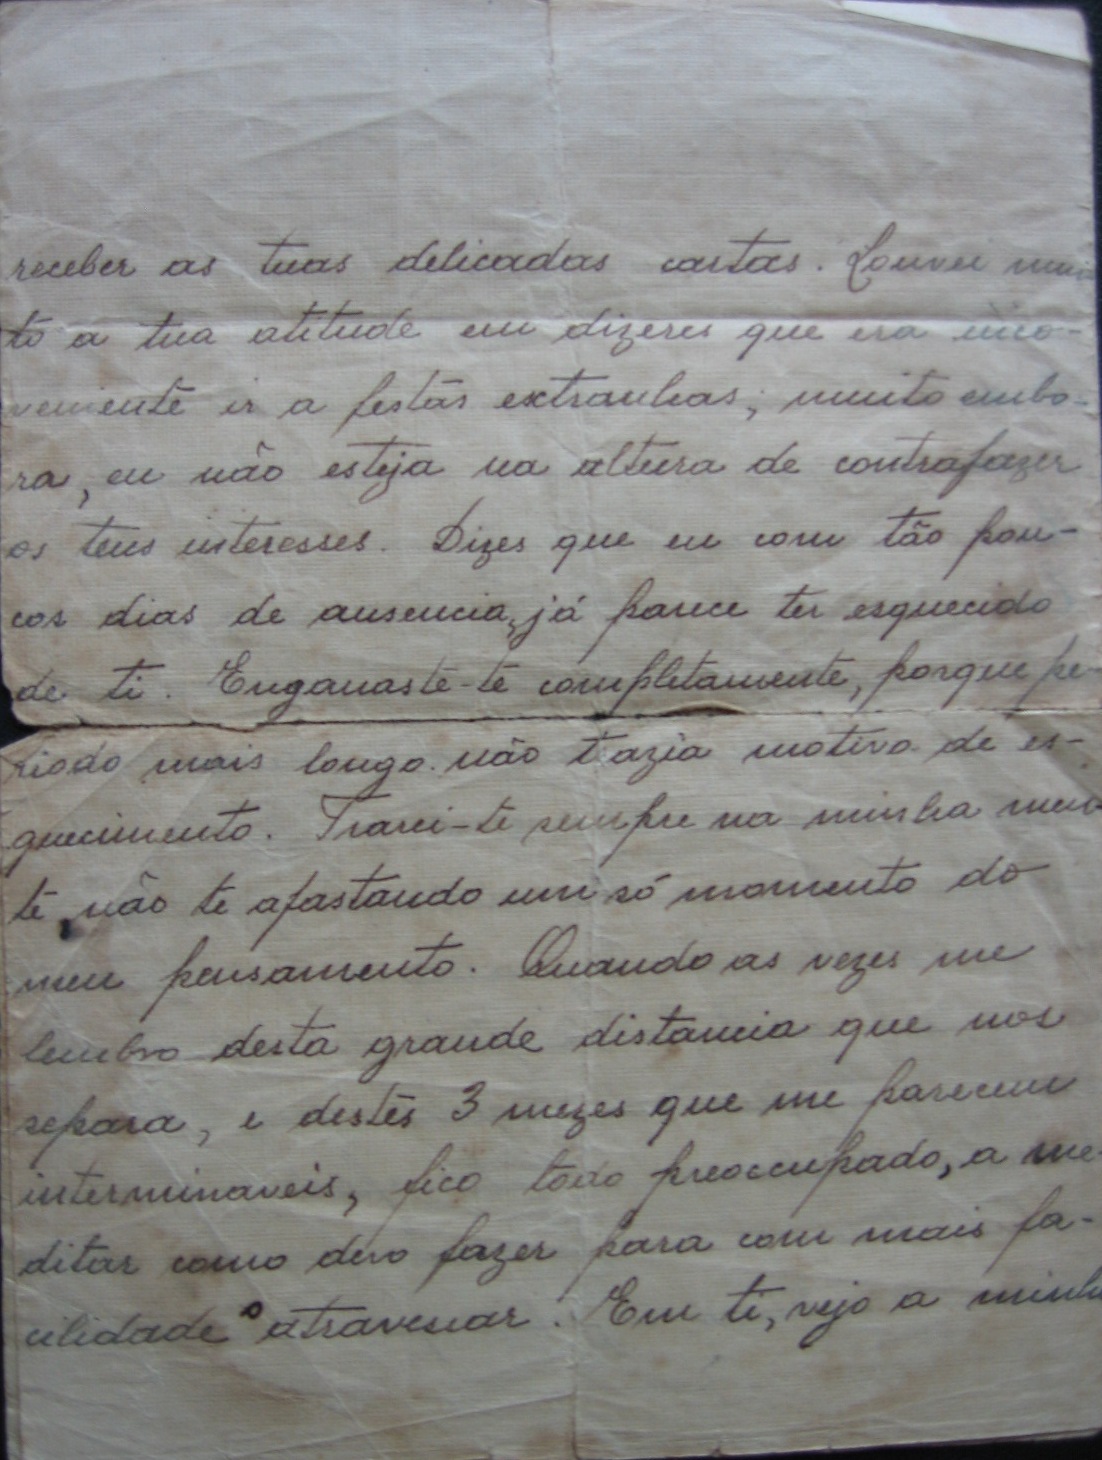 receber as tuas delicadas cartas. Louvei mui
to a tua atitude em dizeres que era inco-
veniente ir a festas extranhas; muito embo-
ra, eu não esteja na altura de contrafazer
os teus interesses. Dizes que eu com tão pou-
cos dias de ausencia, já parece ter esquecido
de ti. Enganaste-te completamente, porque pe-
riodo mais longo não trazia motivo de es-
quecimento. Trarei-te sempre na minha men
te, não te afastando um só momento do
meu pensamento. Quando as vezes me
lembro desta grande distancia que nos
separa, e destes 3 mezes que me parecem
interminaveis, fico todo preoccupado, a me-
ditar como devo fazer para com mais fa-
cilidade o atravessar. Em ti, vejo a minha